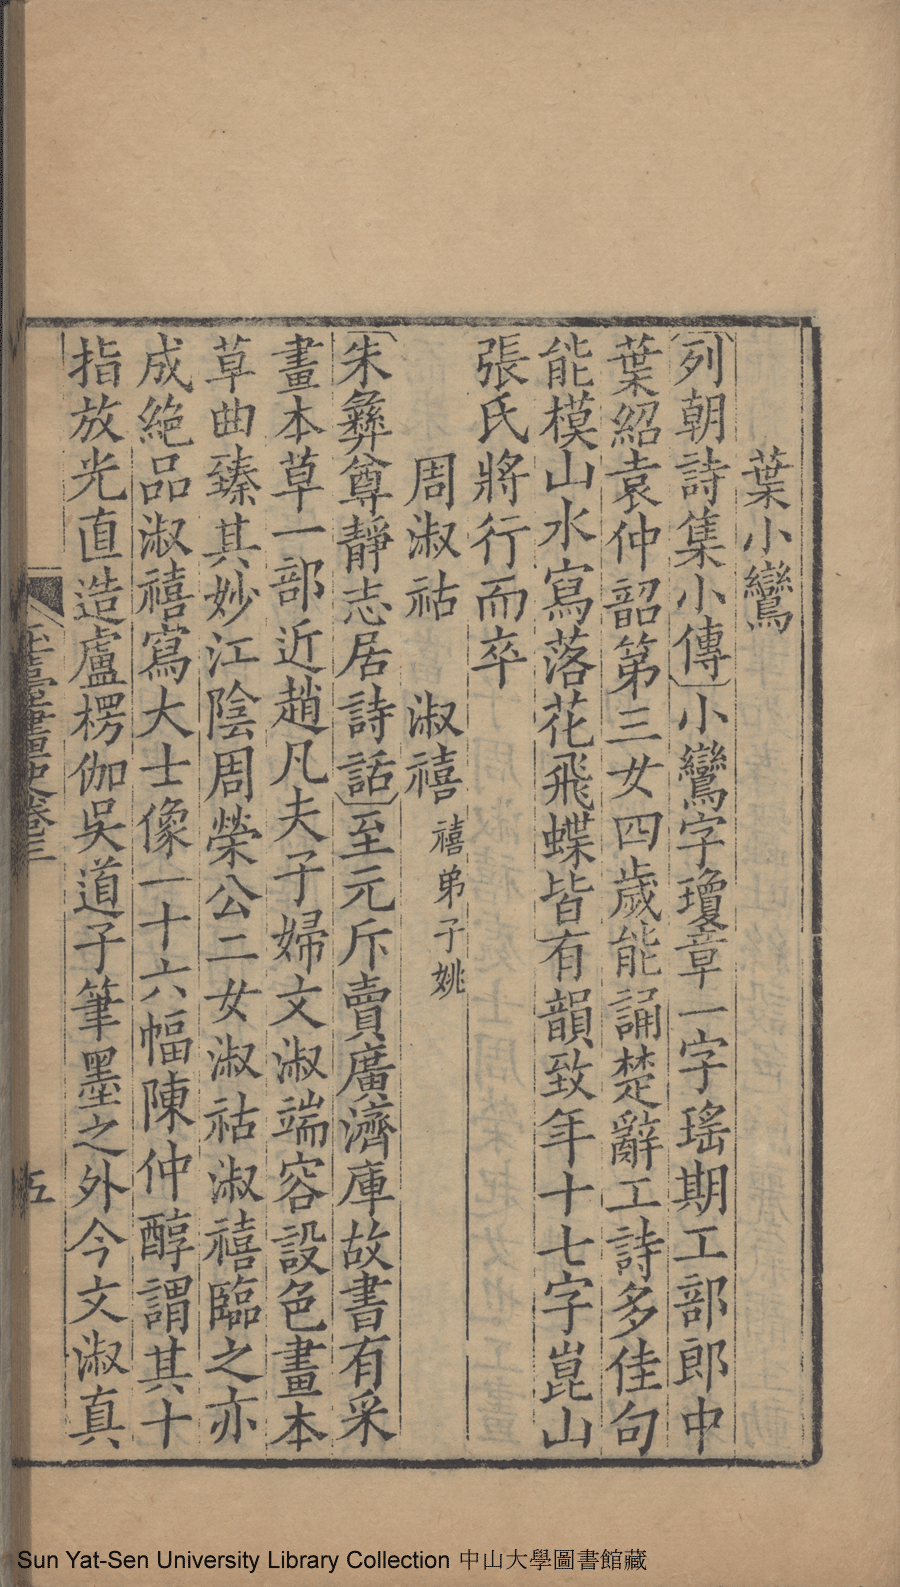 葉小鸞
列朝詩集小傳小鸞字瓊章一字瑤期工部郎中
葉紹袁仲韶第三女四歲能誦楚辭工詩多佳句
能模山水寫落花飛蝶皆有韻致年十七字崑山
張氏將行而卒
周淑祜 淑禧 禧弟子姚
朱彝尊靜志居詩話至元斥賣廣濟庫故書有采
畫本草一部近趙凡夫子婦文淑端容設色畫本
草曲臻其妙江陰周榮公二女淑祜淑禧臨之亦
成絶品淑禧寫大士像一十六幅陳仲醇謂其十
指放光直造盧楞伽吳道子筆墨之外今文淑真
玉臺畫史卷三
五
Sun Yat-Sen University Library Collection 中山大學圖書館藏